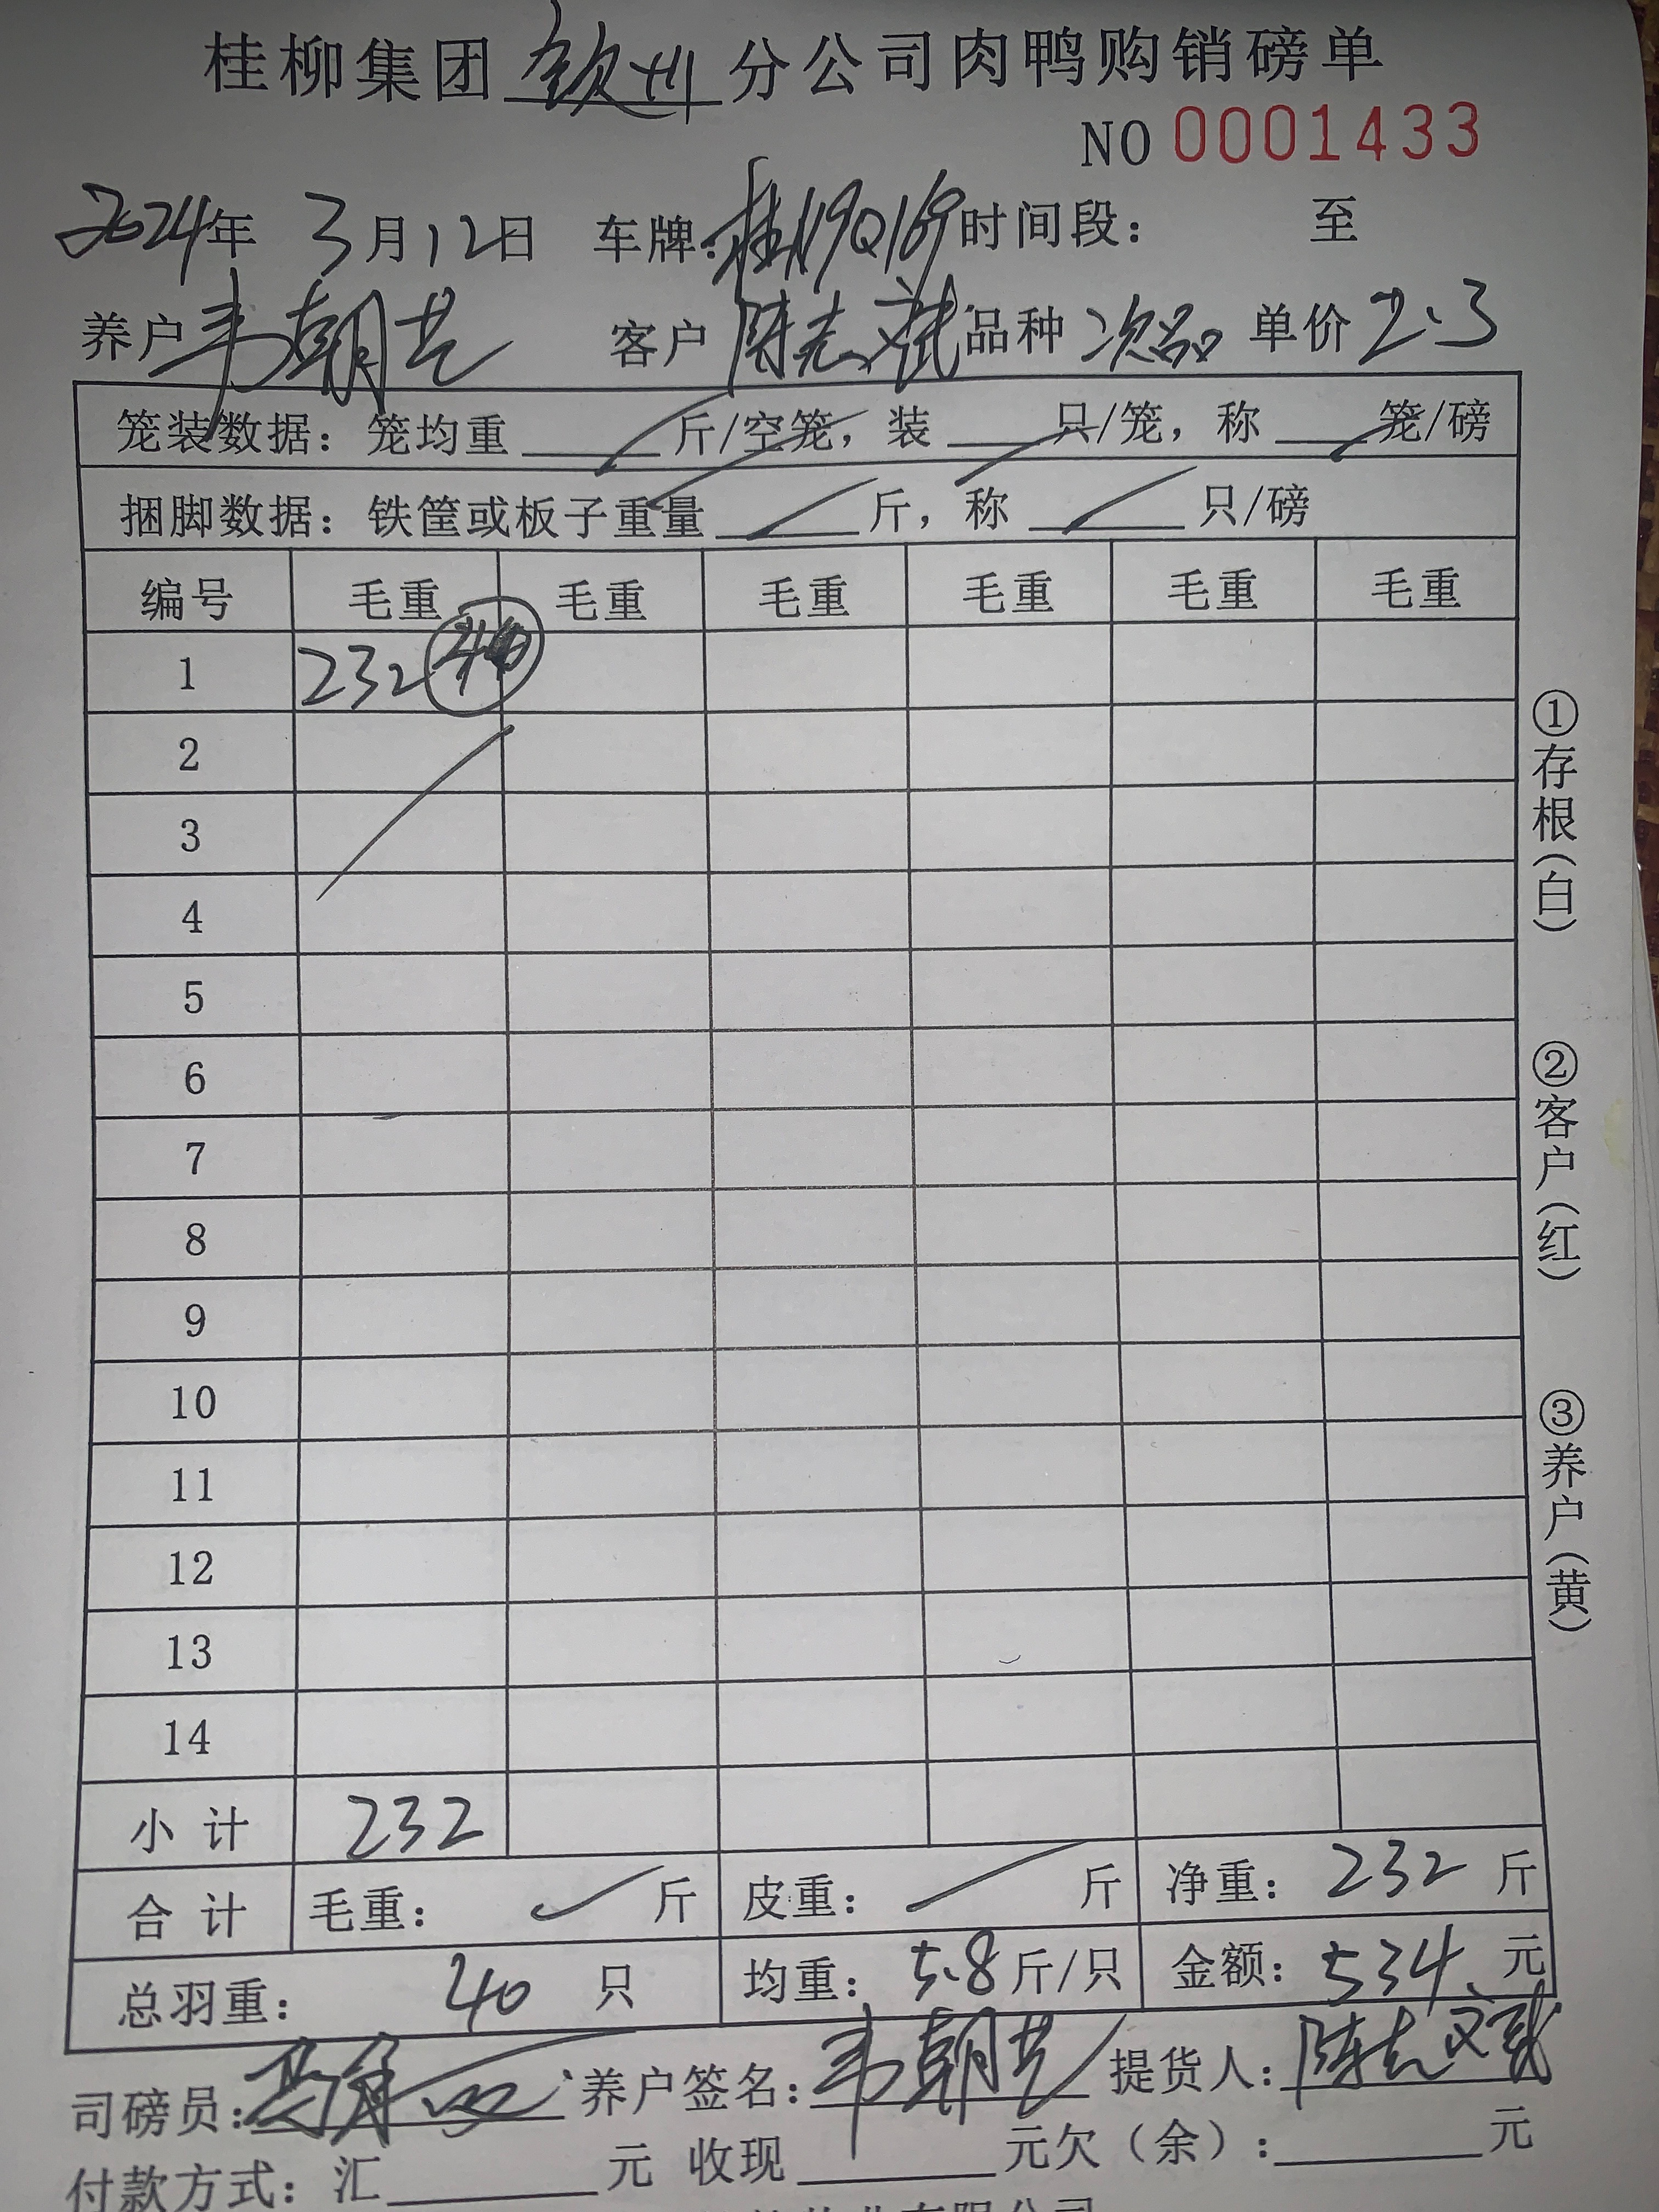 桂柳集团 钦州 分公司肉鸭购销磅单
NO 0001433
2024年 3月12日 车牌:桂N9Q169 时间段: 至
养户 韦朝艺 客户 陈志斌 品种 次品 单价 2.3
笼装数据:笼均重 斤/空笼,装 只/笼,称 笼/磅
捆脚数据:铁筐或板子重量 斤,称 只/磅
编号 毛重 毛重 毛重 毛重 毛重 毛重
1 232
2
3
4
5
6
7
8
9
10
11
12
13
14
小计 232
合计 毛重: 斤 皮重: 斤 净重: 232 斤
总羽重: 40 只 均重: 5.8 斤/只 金额: 534 元
司磅员: 养户签名: 韦朝艺 提货人: 陈志斌
付款方式:汇 元 收现 元欠(余): 元
有限公司
①存根(白)
②客户(红)
③养户(黄)